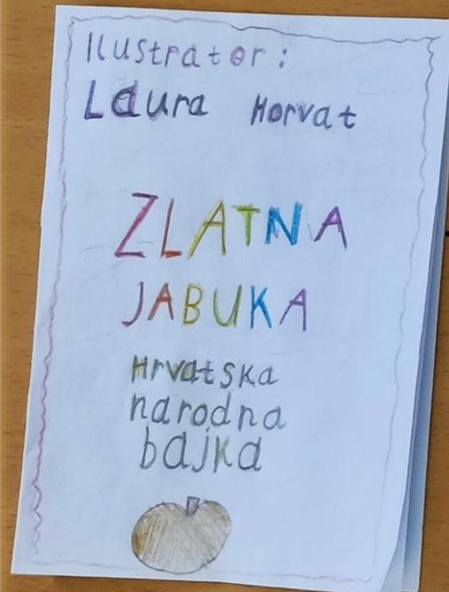 Ilustrator:
Laura Horvat
ZLATNA
JABUKA
Hrvatska
narodna
bajka